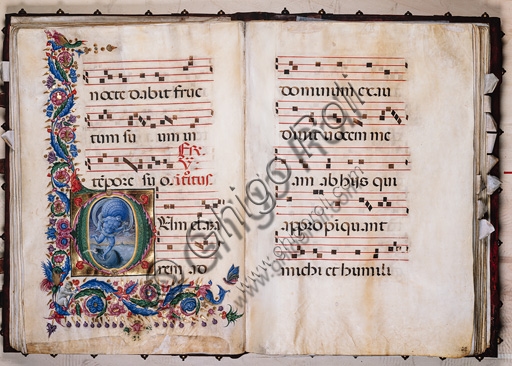 nocte dabit fruc
tum su um in
tēpore suo. Itroitus.
Elm et a
rem ad
dominum exau
diuit uocem me
am ab his qui
appropiquant
michi et humili
© Ghigo Roli
www.ghigoroli.com